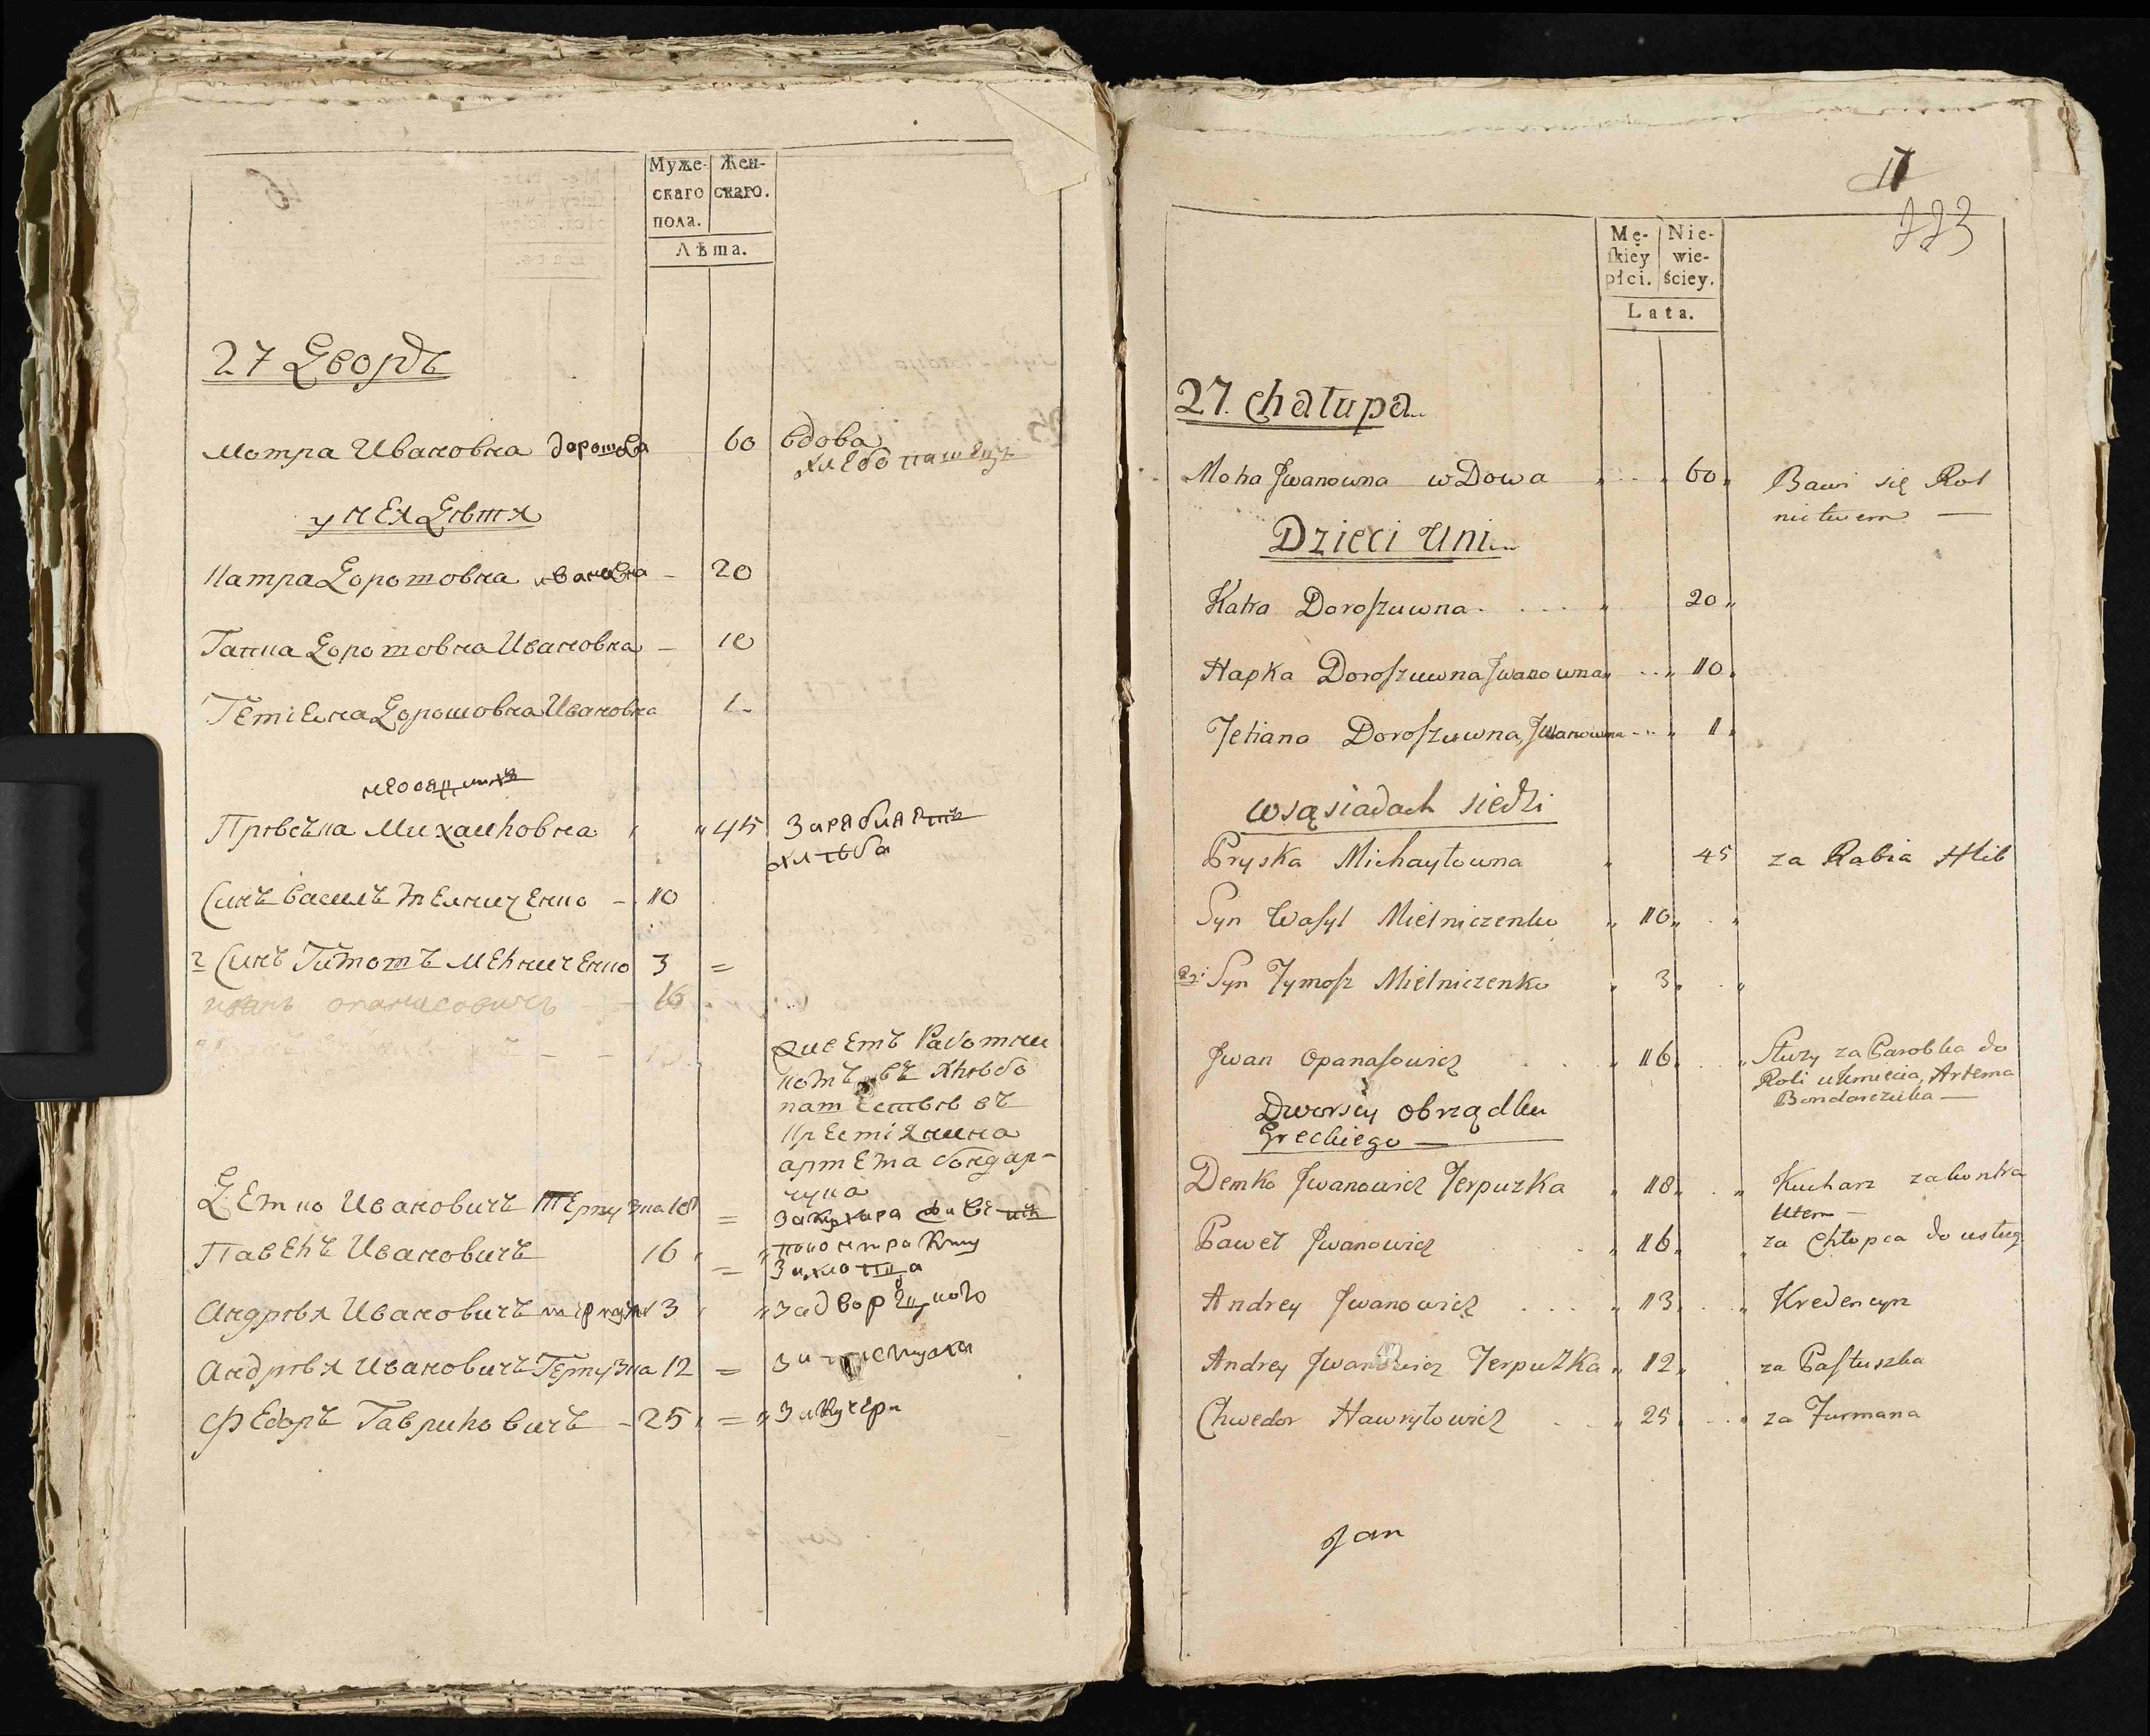 Муже-
скаго
пола.
Жен-
скаго.
Лѣта.
27 Дворъ
Мотра Ивановна 60 вдова
хлебопашецъ
у неядѣтя
Катра Дорошовна 20
Ганна Дорошовна Ивановна 10
Тетіена Дорошовна Ивановна 1
Прѣсъка Михайловна 45 Зарабиаетъ
хлѣба
Синъ василъ Мелниченко 10
2 Синъ Тимошъ Мелниченко 3
иванъ опанасовичъ 16
живетъ Работни
комъ въ Хлѣбо
пашествѣ въ
Крестіянина
артема бондар-
чука
Демко Ивановичъ Терпузка 18
Павелъ Ивановичъ 16
Андрѣя Ивановичъ 13
Андрѣя Ивановичъ Терпузка 12
Федоръ Гаврилович 25 За Кучера
17
223
Mę-
skiey
płci.
Nie-
wie-
ściey.
Lata.
27. Chałupa
Motra Jwanowna wDowa 60 Bawi się Rol
nictwem
Dzieci Uni
Katra Doroszuwna 20
Hapka Doroszuwna Jwanowna 10
Tetiana Doroszuwna Jwanowna 1
w sąsiadach siedzi
Pryska Michayłowna 45 za Rabia Hlib
Syn Wasyl Mielniczenko 10
2gi Syn Tymosz Mielniczenko 3
Jwan Opanasowicz 16 Służy za Parobka do
Roli u kmiecia Artema
Bondarczuka
Dworscy obrządku
Greckiego
Demko Jwanowicz Terpuzka 18 Kucharz za kontra
ktem
Paweł Jwanowicz 16 za Chłopca do usług
Andrey Jwanowicz 13 Kredencyrz
Andrey Jwanowicz Terpuzka 12 za Pastuszka
Chwedor Hawryłowicz 25 za Furmana
Jan